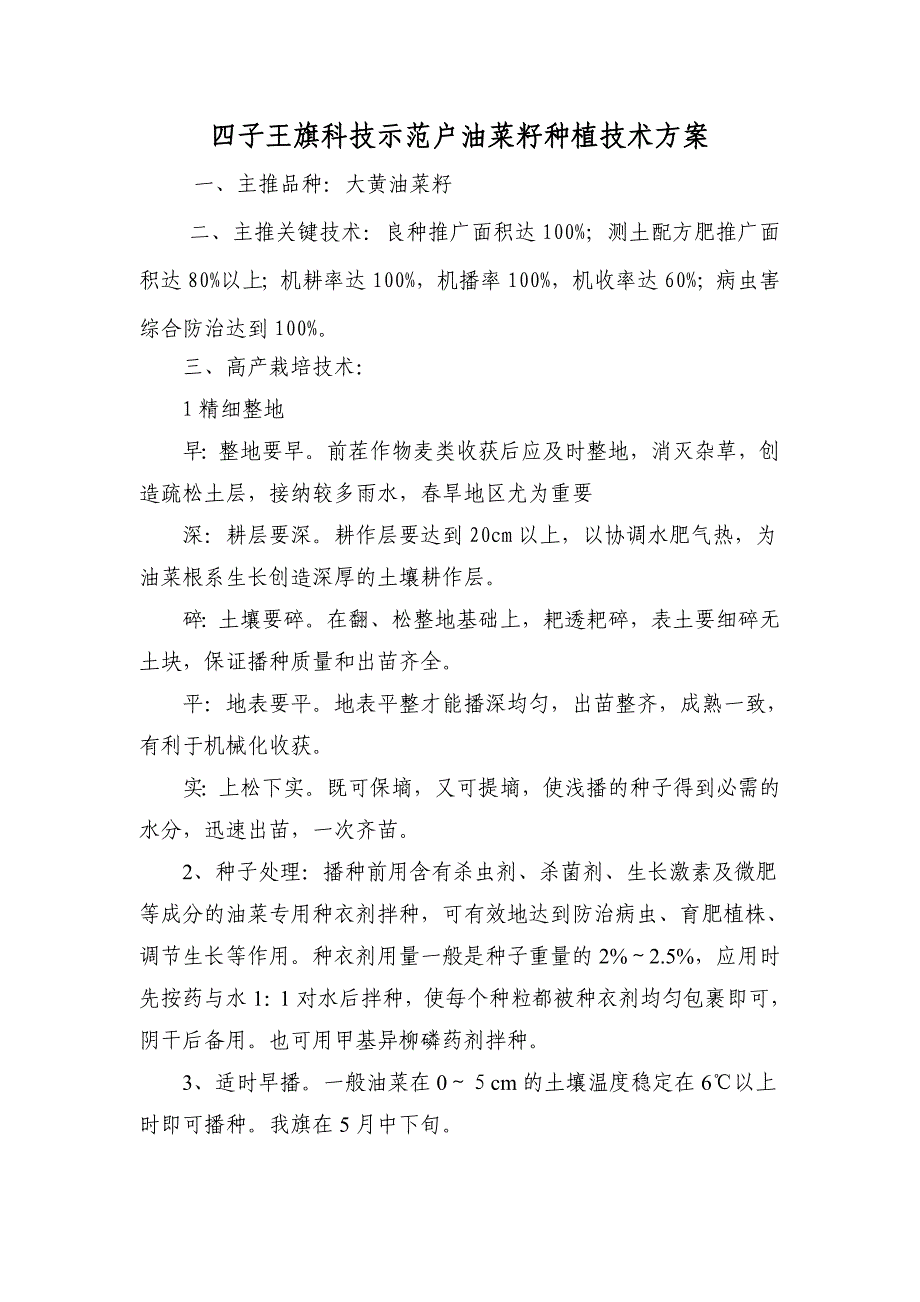 四子王旗科技示范户油菜籽种植技术方案
一、主推品种：大黄油菜籽
二、主推关键技术：良种推广面积达 100%；测土配方肥推广面
积达 80%以上；机耕率达 100%，机播率 100%，机收率达 60%；病虫害
综合防治达到 100%。
三、高产栽培技术：
1 精细整地
早：整地要早。前茬作物麦类收获后应及时整地，消灭杂草，创
造疏松土层，接纳较多雨水，春旱地区尤为重要
深：耕层要深。耕作层要达到 20cm 以上，以协调水肥气热，为
油菜根系生长创造深厚的土壤耕作层。
碎：土壤要碎。在翻、松整地基础上，耙透耙碎，表土要细碎无
土块，保证播种质量和出苗齐全。
平：地表要平。地表平整才能播深均匀，出苗整齐，成熟一致，
有利于机械化收获。
实：上松下实。既可保墒，又可提墒，使浅播的种子得到必需的
水分，迅速出苗，一次齐苗。
2、种子处理：播种前用含有杀虫剂、杀菌剂、生长激素及微肥
等成分的油菜专用种衣剂拌种，可有效地达到防治病虫、育肥植株、
调节生长等作用。种衣剂用量一般是种子重量的 2%～2.5%，应用时
先按药与水 1：1 对水后拌种，使每个种粒都被种衣剂均匀包裹即可，
阴干后备用。也可用甲基异柳磷药剂拌种。
3、适时早播。一般油菜在 0～ 5 cm 的土壤温度稳定在 6℃以上
时即可播种。我旗在 5 月中下旬。